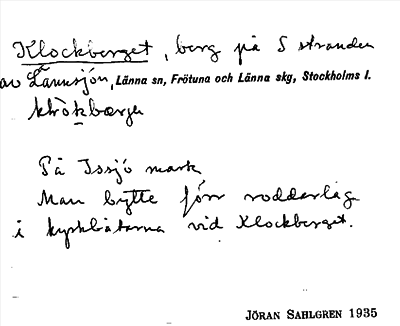 Klockberget, berg på S stranden
av Lännsjön, Länna sn, Frötuna och Länna skg, Stockholms l.
På Issjö mark
Man bytte förr rodderlag
i kyrkbåtarna vid Klockberget.
JÖRAN SAHLGREN 1935